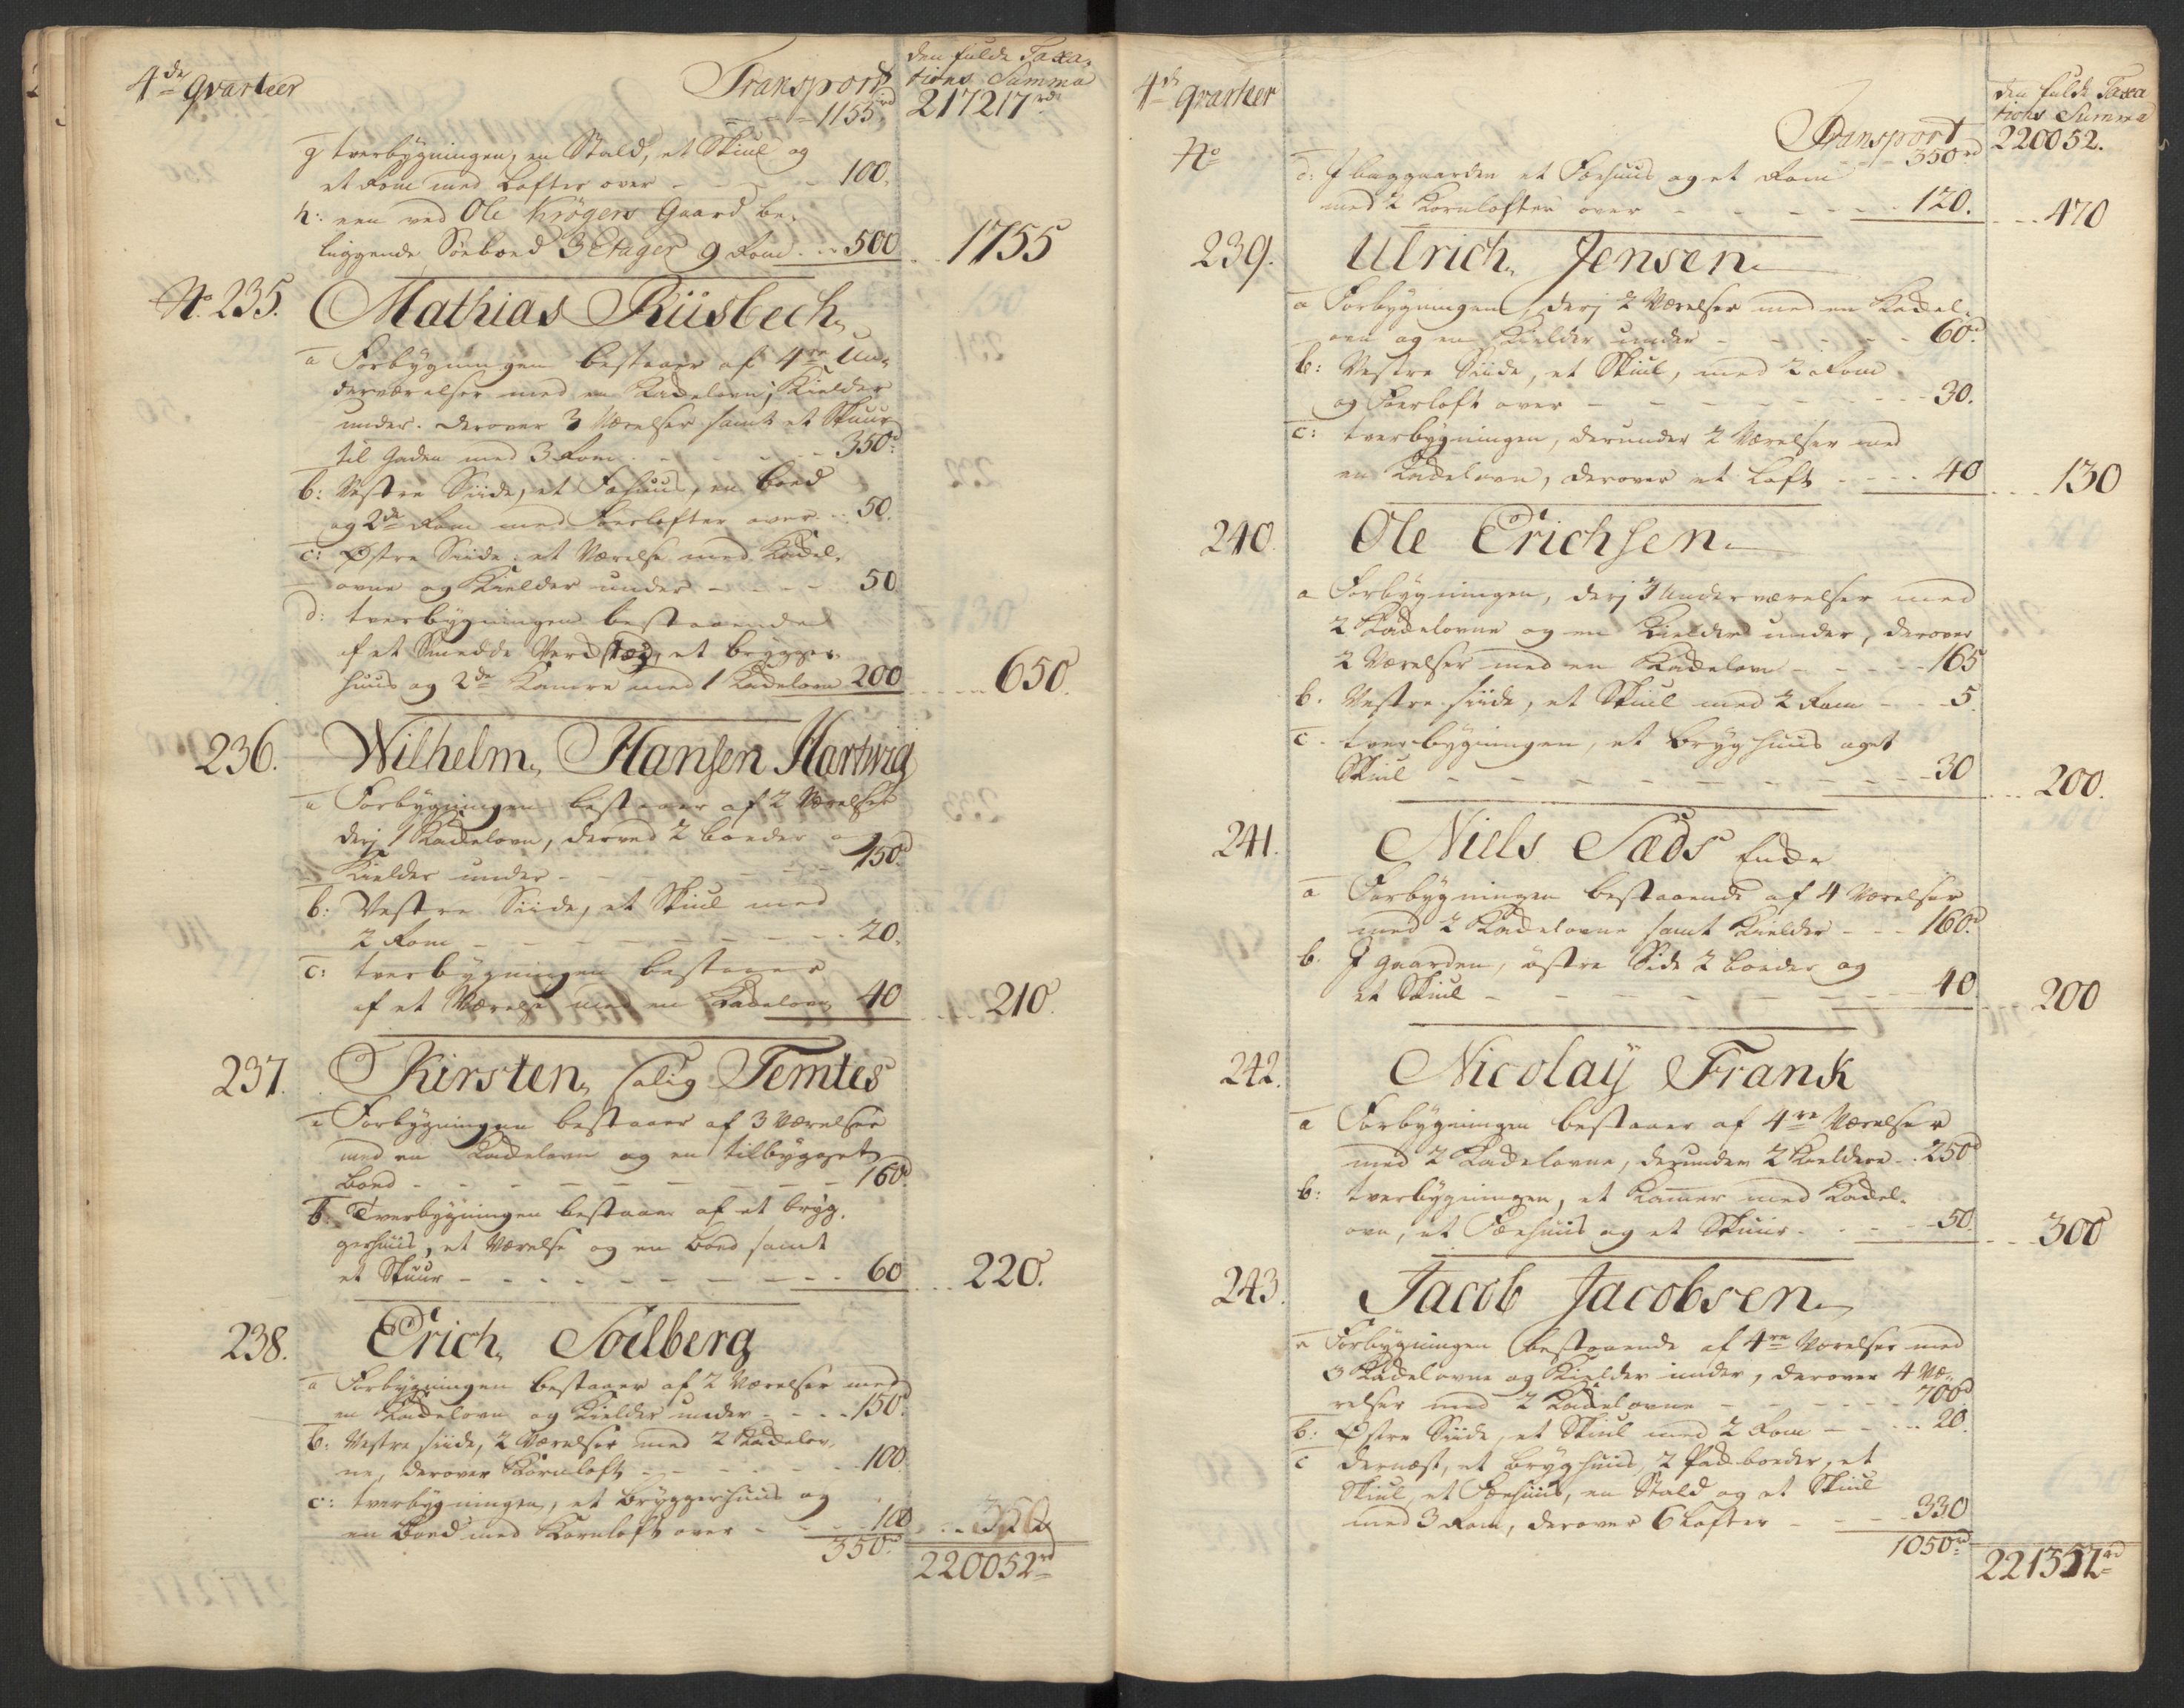 4de qvarteer
Transport
1155rd
den fulde Taxa-
tions Summa
217217rd
g tverbygningen, en Stald, et Skiul og
et Rom med Lofter over - - - 100.
h: een ved Ole Krøgers Gaard be-
liggende Søeboed 3 Etager 9 Rom - 500 - 1755
No. 235. Mathias Riisbech
a Forbygningen bestaaer af 4re Un-
derværelser med en Kadelovn, Kielder
under. derover 3 Værelser samt et Skuur
til Gaden med 3 Rom - - - 350rd
b: Vestre Siide, et Fæhuus, en boed
og 2de Rom med Foerlofter over - 50.
c: Østre Siide, et Værelse med Kadel-
ovne og Kielder under - - - 50.
d: tverbygningen bestaaende
af et Smedde Verckstæd, et brygger-
huus og 2de Kamre med 1 Kadelovn 200 - 650.
236. Wilhelm Hansen Hartwig
a Forbygningen bestaaer af 2 Værelser
derj 1 Kadelovn, derved 2 boeder og
Kielder under - - - 150rd
b: Vestre Siide, et Skiul med
2 Rom - - - 20.
c: tverbygningen bestaaer
af et Værelse med en Kadelovn 40 - 210.
237. Kirsten salig Temtes
a Forbygningen bestaaer af 3 Værelser
med en Kadelovn og en tilbygget
Boed - - - 160rd
b. Tverbygningen bestaaer af et bryg-
gerhuus, et Værelse og en Boed samt
et Skuur - - - 60 - 220.
238. Erich Soelberg
a Forbygningen bestaaer af 2 Værelser med
en Kadelovn og Kielder under - - 150rd
b: Vestre siide, 2 Værelser med 2 Kadelov-
ne, derover Kornloft - - - 100.
c: tverbygningen, et bryggerhuus og
en Boed med Kornloft over - - 100
350rd
220052rd
4de qvarteer
No
Transport
350rd
den fulde Taxa
tions Summa
220052.
d: J baggaarden et Fæehuus og et Rom
med 2 Kornlofter over - - - 120. - 470
239. Ulrich Jensen
a Forbygningen, derj 2 Værelser med en Kadel-
ovn og en Kielder under - - - 60rd
b: Vestre Siide, et Skiul, med 2 Rom
og Foerloft over - - - 30.
c: tverbygningen, derunder 2 Værelser med
en Kadelovn, derover et Loft - - 40 - 130
240. Ole Erichsen
a Forbygningen, derj 3 Underværelser med
2 Kadelovne og en Kielder under, derover
2 Værelser med en Kadelovn - - - 165
b. Vestre siide, et Skiul med 2 Rom - - 5.
c. tverbygningen, et bryghuus og et
Skiul - - - 30 - 200.
241. Niels Sæds Enke
a Forbygningen bestaaende af 4 Værelser
med 2 Kadelovne samt Kielder - - 160rd
b. J gaarden, østre Side 2 boeder og
et Skiul - - - 40. - 200
242. Nicolaij Frank
a Forbygningen bestaaer af 4re Værelser
med 2 Kadelovne, derunder 2 Kieldere - 250rd
b: tverbygningen, et Kammer med Kadel-
ovn, et Fæehuus og et Skuur - - 50. - 300
243. Jacob Jacobsen
a Forbygningen bestaaende af 4re Værelser med
3 Kadelovne og Kielder under, derover 4 Væ-
relser med 2 Kadelovne - - - 700rd
b: Østre Siide, et Skiul med 2 Rom - - 20.
c dernæst, et bryghuus, 2 Pakboeder, et
Skiul, et Fæehuus, en Stald og et Skiul
med 3 Rom, derover 6 Lofter - - 330
1050rd
221352rd